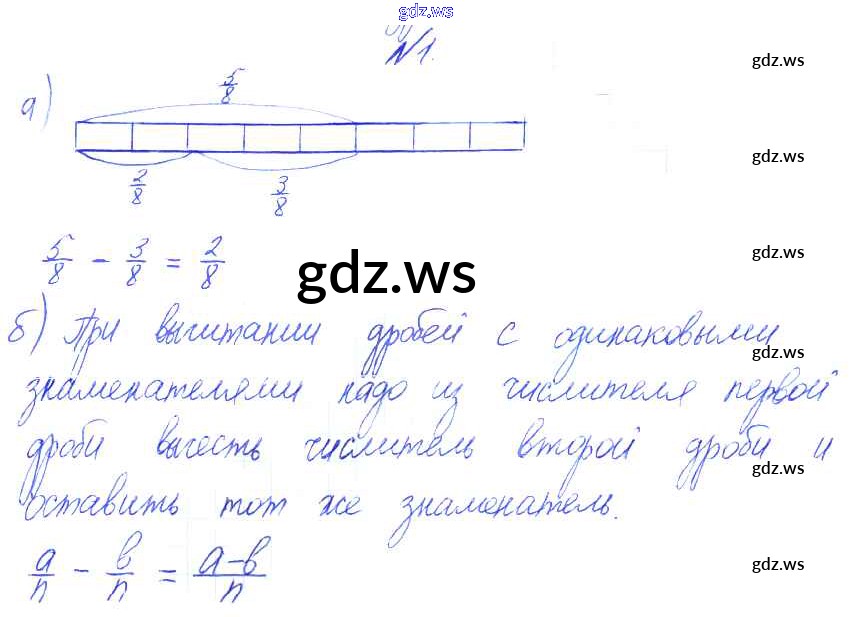 gdz.ws
№1.
gdz.ws
а)
5/8
gdz.ws
2/8
3/8
gdz.ws
5/8 - 3/8 = 2/8
gdz.ws
б) При вычитании дробей с одинаковыми
gdz.ws
знаменателями надо из числителя первой
дроби вычесть числитель второй дроби и
gdz.ws
оставить тот же знаменатель.
a/n - b/n = a-b/n
gdz.ws